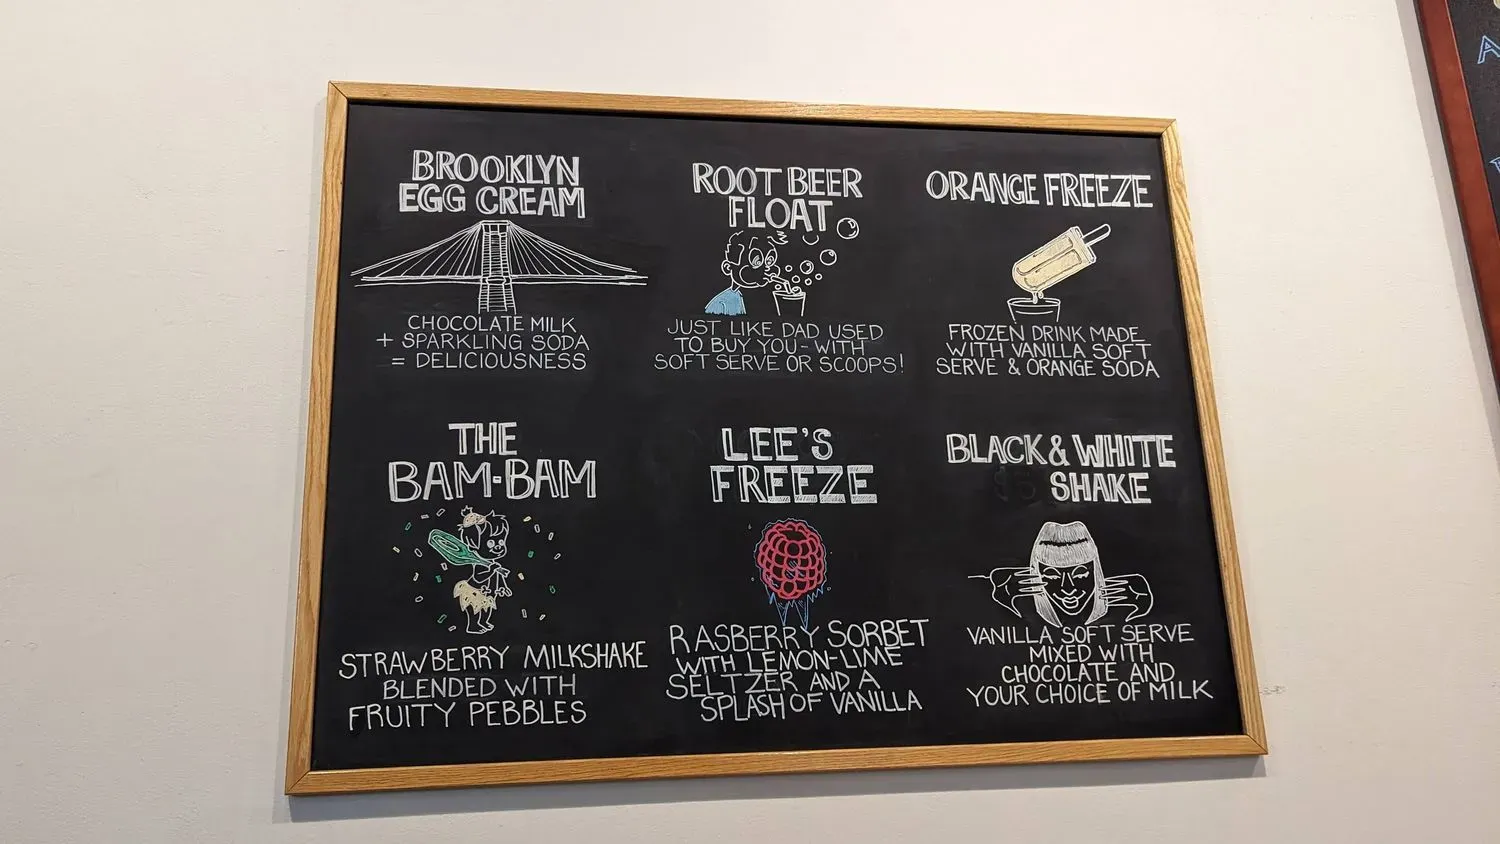 BROOKLYN
EGG CREAM
CHOCOLATE MILK
+ SPARKLING SODA
= DELICIOUSNESS
ROOT BEER
FLOAT
JUST LIKE DAD USED
TO BUY YOU - WITH
SOFT SERVE OR SCOOPS!
ORANGE FREEZE
FROZEN DRINK MADE
WITH VANILLA SOFT
SERVE & ORANGE SODA
THE
BAM-BAM
STRAWBERRY MILKSHAKE
BLENDED WITH
FRUITY PEBBLES
LEE'S
FREEZE
RASBERRY SORBET
WITH LEMON-LIME
SELTZER AND A
SPLASH OF VANILLA
BLACK & WHITE
SHAKE
VANILLA SOFT SERVE
MIXED WITH
CHOCOLATE AND
YOUR CHOICE OF MILK
A